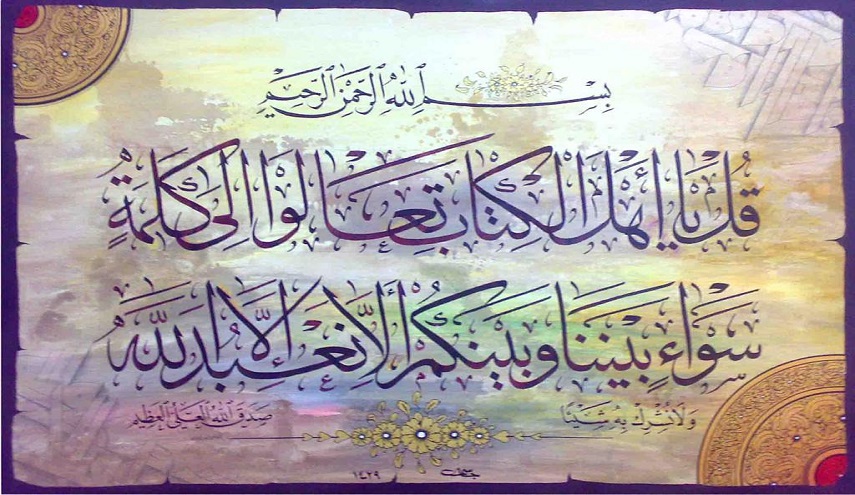 بِسْمِ اللهِ الرَّحْمٰنِ الرَّحِيْمِ
قُلْ يَا أَهْلَ الْكِتَابِ تَعَالَوْا إِلَى كَلِمَةٍ
سَوَاءٍ بَيْنَنَا وَبَيْنَكُمْ أَلَّا نَعْبُدَ إِلَّا اللَّهَ
وَلَا نُشْرِكَ بِهِ شَيْئًا صَدَقَ اللهُ الْعَلِيُّ الْعَظِيْم
١٤٢٩